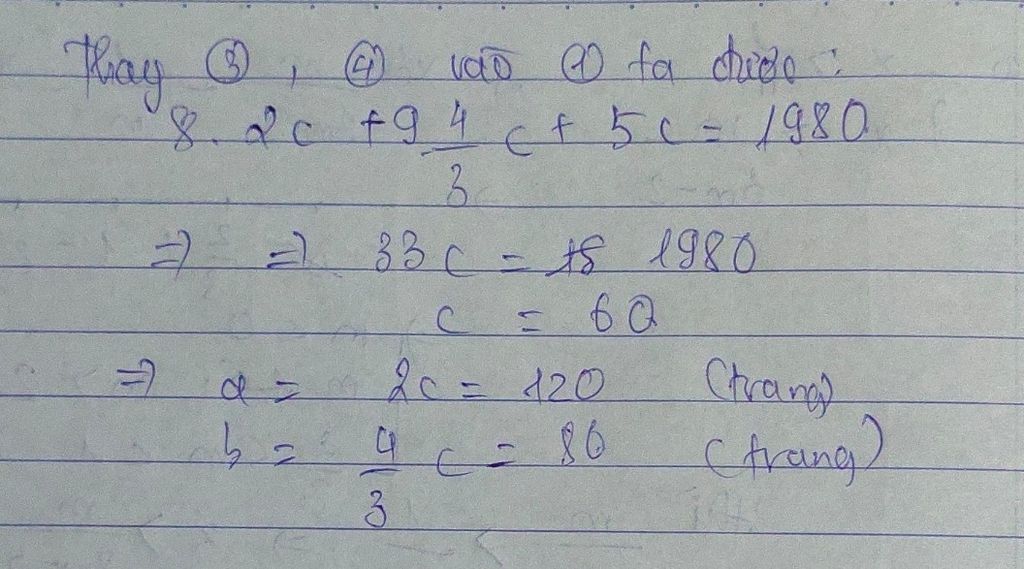 Thay ③, ④ vào ① ta được:
8. 2c + 9 4/3 c + 5c = 1980
=> => 33c = 1980
c = 60
=> a = 2c = 120 (trang)
b = 4/3 c = 80 (trang)